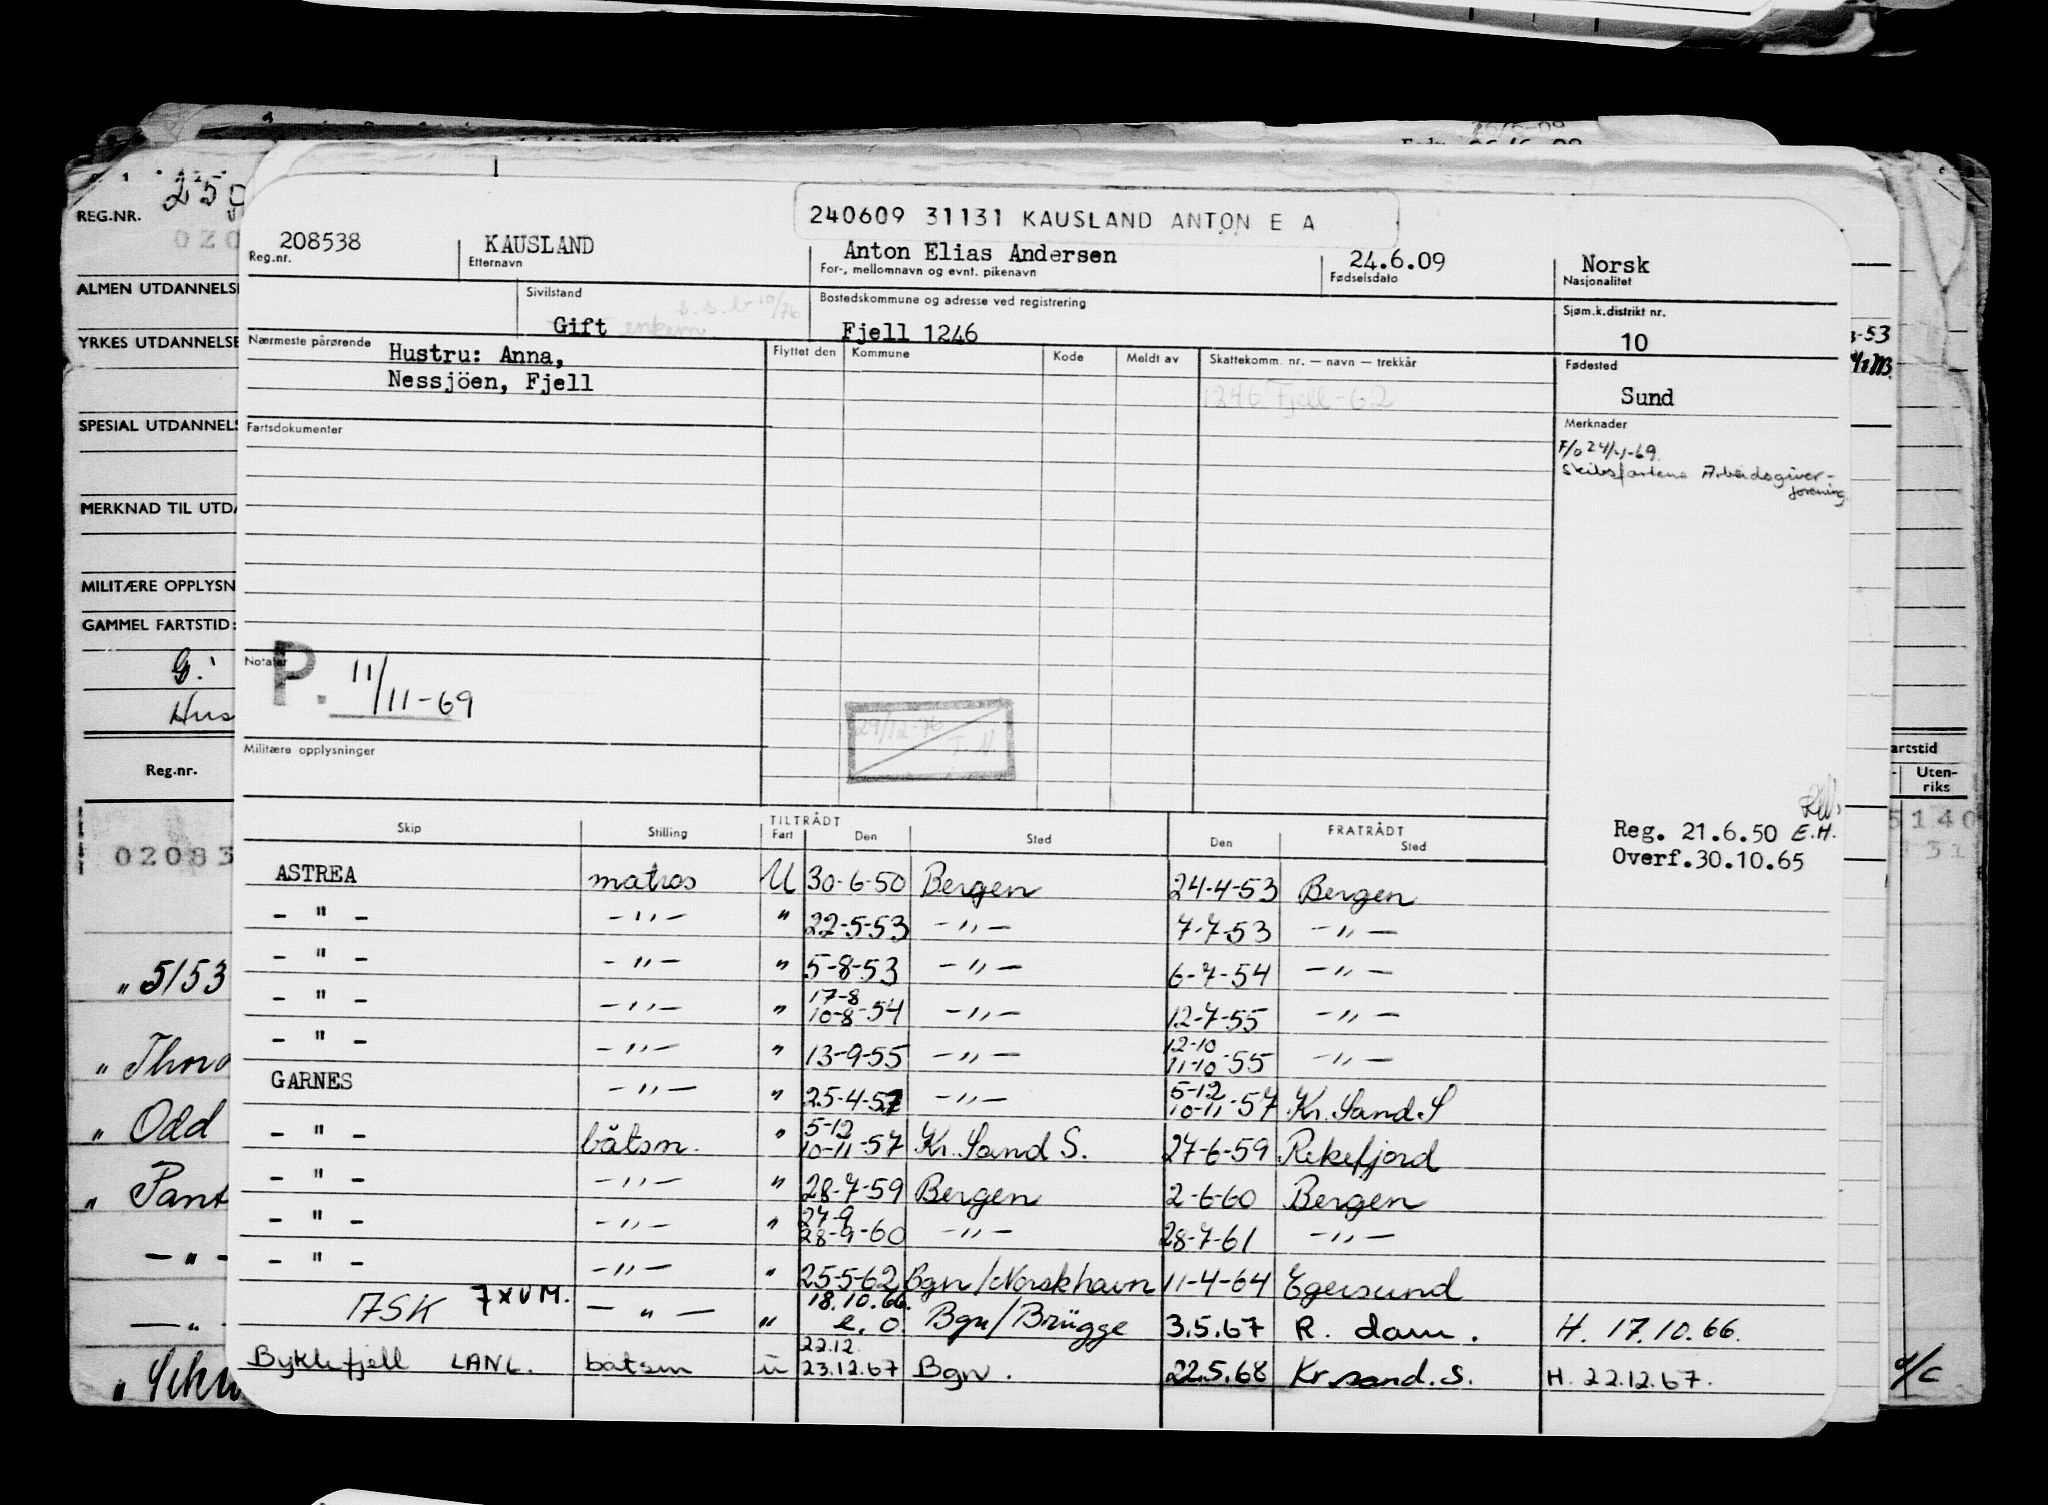 240609 31131 KAUSLAND ANTON E A
208538 KAUSLAND Anton Elias Andersen 24.6.09 Norsk
Reg.nr. Etternavn For-, mellomnavn og evnt. pikenavn Fødselsdato Nasjonalitet
Sivilstand Bostedskommune og adresse ved registrering Sjøm.k.distrikt nr.
Gift Fjell 1246 10
Nærmeste pårørende Flyttet den Kommune Kode Meldt av Skattekomm. nr. — navn — trekkår Fødested
Hustru: Anna,
Nessjöen, Fjell 1246 Fjell-62 Sund
Fartsdokumenter Merknader
F/o 24/-1-69.
Skibsfartens Arbeidsgiver-
forening
Notater
P. 11/11-69
29/12-76
Militære opplysninger
Reg. 21.6.50 E.H.
Overf.30.10.65
Skip Stilling TILTRÅDT FRATRÅDT
Fart Den Sted Den Sted
ASTREA matros U 30-6-50 Bergen 24-4-53 Bergen
- " - -"- " 22-5-53 -"- 7-7-53 -"-
- " - -"- " 5-8-53 -"- 6-7-54 -"-
- " - -"- " 17-8 10-8-54 -"- 12-7-55 -"-
- " - -"- " 13-9-55 -"- 12-10 11-10-55 -"-
GARNES -"- " 25-4-57 -"- 5-12 10-11-57 Kr. Sand. S
- " - båtsm. " 5-12 10-11-57 Kr. Sand S. 27-6-59 Rekefjord
- " - -"- " 28-7-59 Bergen 2-6-60 Bergen
- " - -"- " 27-9 28-9-60 -"- 28-7-61 -"-
- " - -"- " 25-5-62 Bgn/Norskhavn 11-4-64 Egersund
7XVM. -"- " 18.10.66. e.o. Bgn/Brügge 3.5.67 R. dam. H. 17.10.66.
Byklefjell LANL. båtsm u 22.12. 23.12.67 Bgn. 22.5.68 Kr.sand.S. H. 22.12.67.
REG.NR.
ALMEN UTDANNELSE
YRKES UTDANNELSE
SPECIAL UTDANNELS
MERKNAD TIL UTDA
MILITÆRE OPPLYSN
GAMMEL FARTSTID:
G.
Hus
Reg.nr.
02083
" 5153
" Odd
" Pant
- " -
- " -
-53
artstid
Uten-
riks
5140